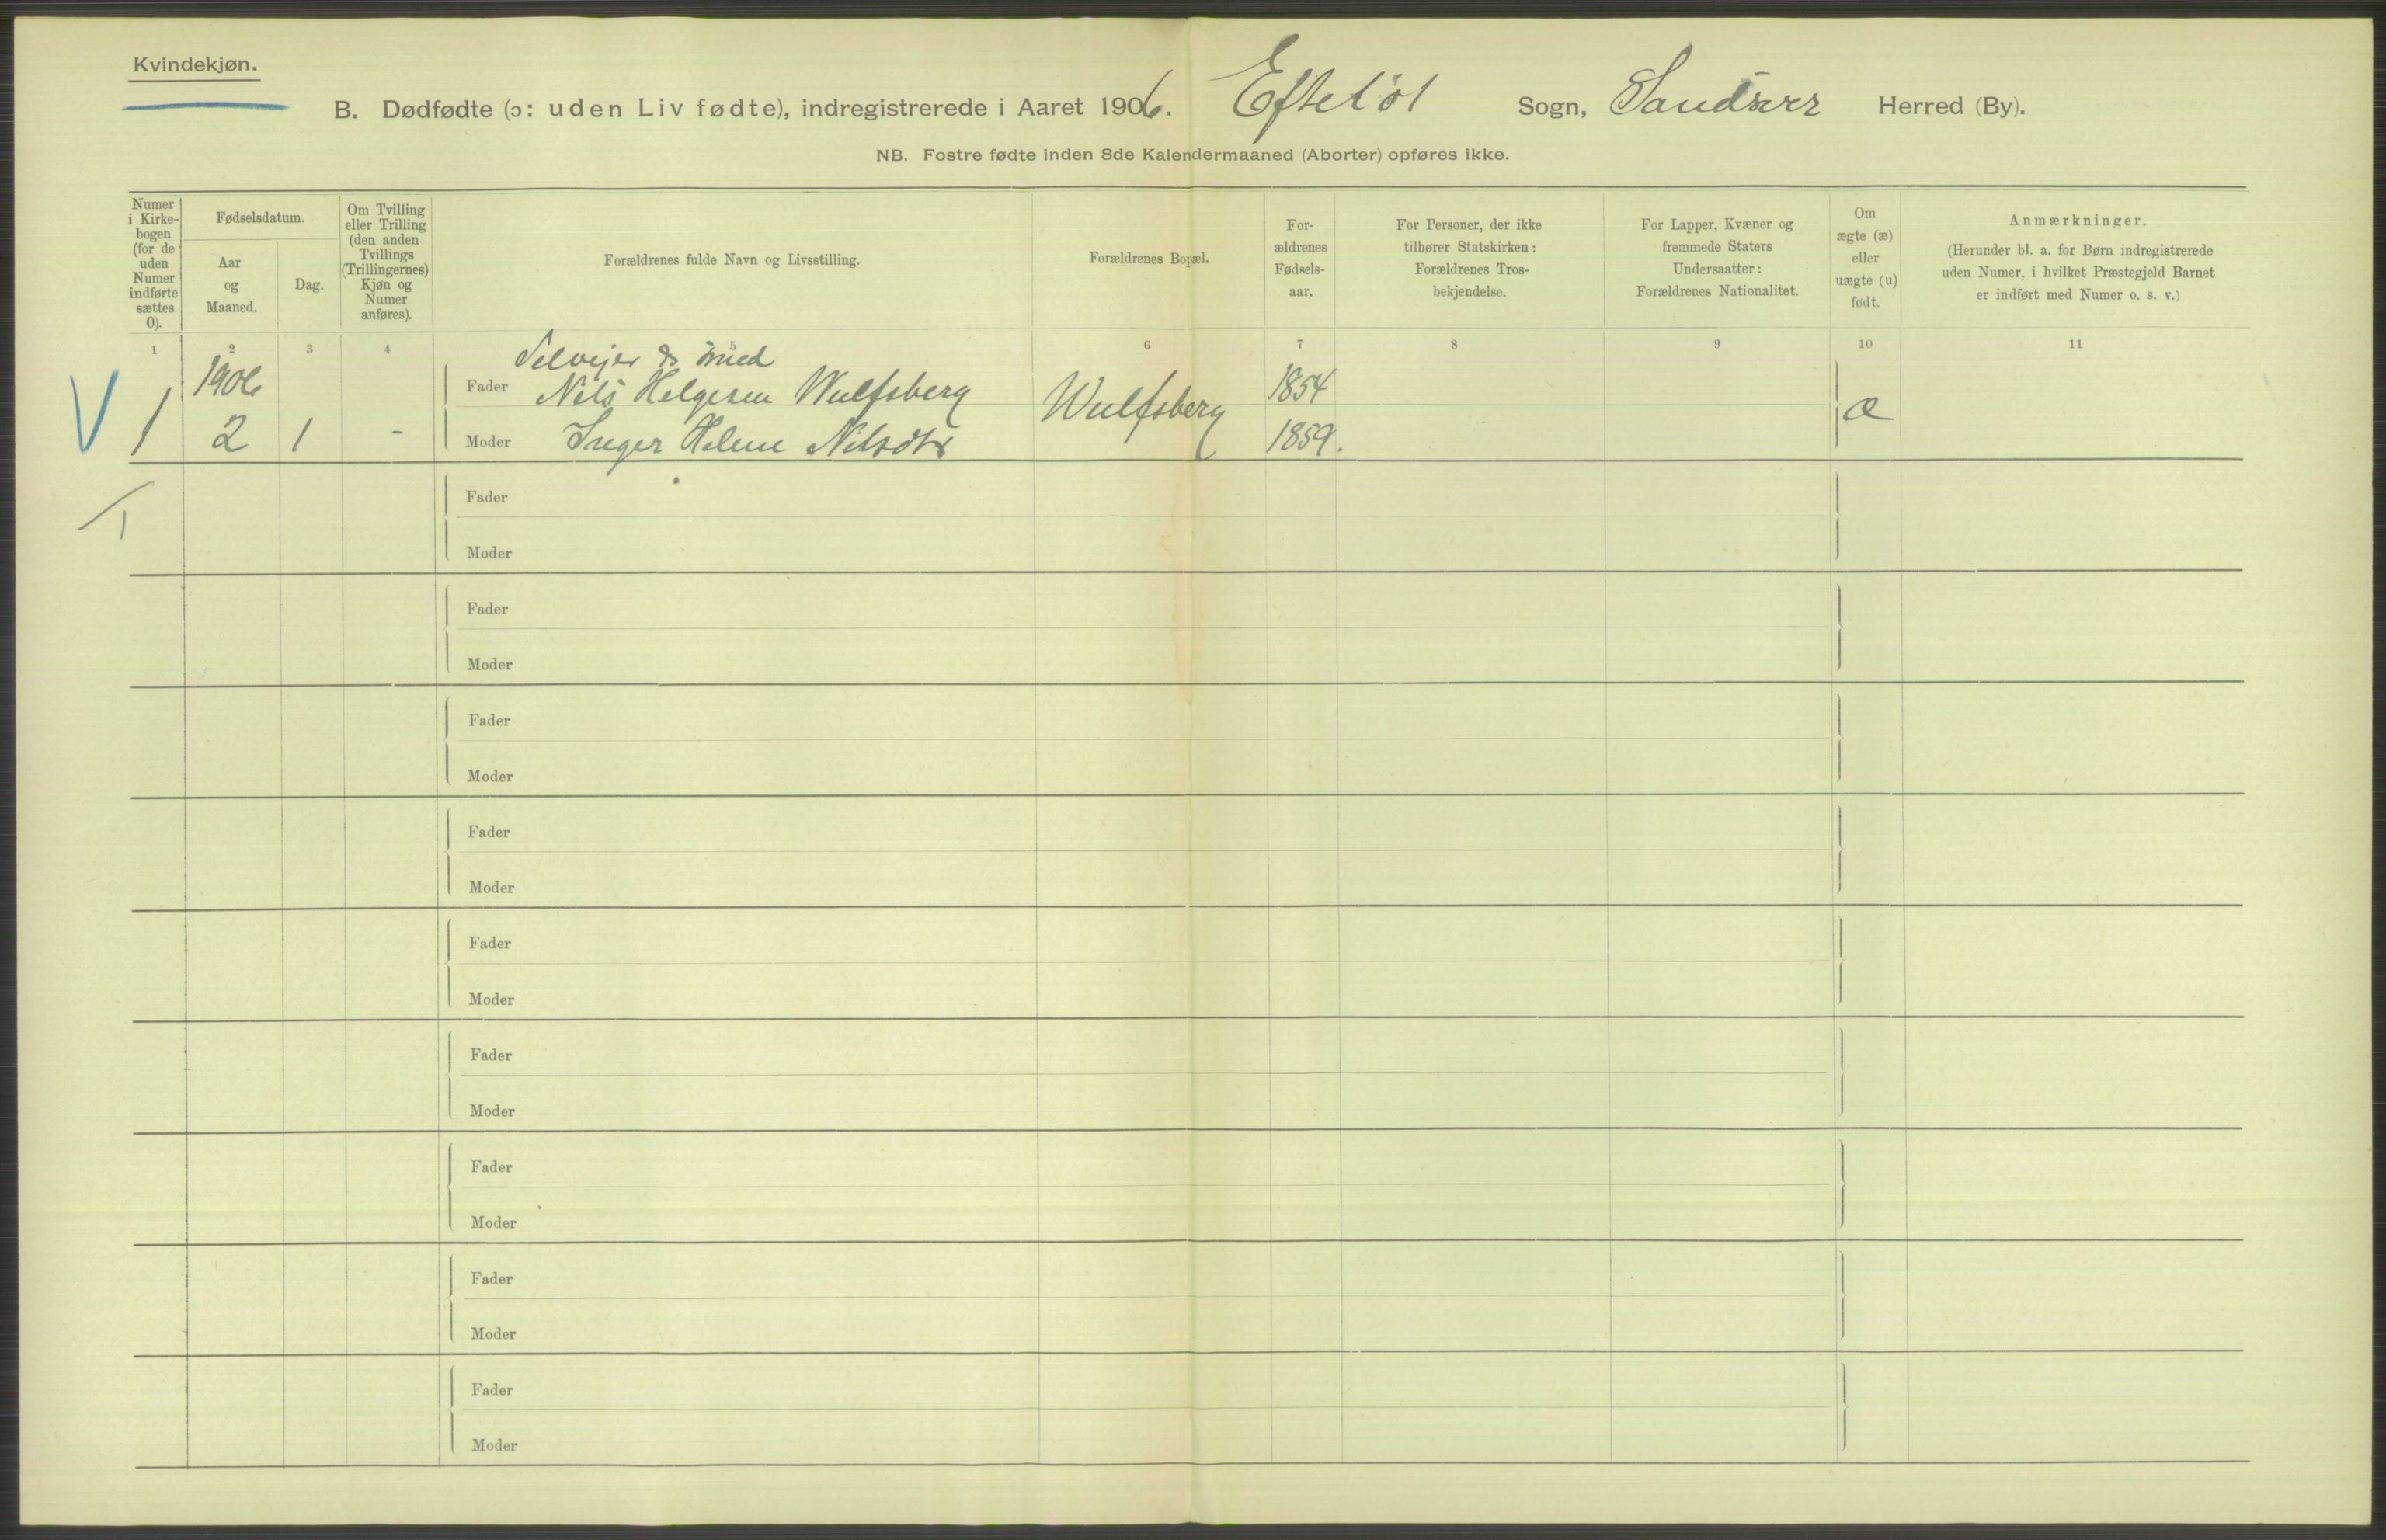 Kvindekjøn.
B. Dødfødte (ɔ: uden Liv fødte), indregistrerede i Aaret 1906. Efteløt Sogn, Sandsver Herred (By).
NB. Fostre fødte inden 8de Kalendermaaned (Aborter) opføres ikke.
Numer i Kirke-bogen (for de uden Numer indførte sættes 0).
Fødselsdatum.
Aar og Maaned.
Dag.
Om Tvilling eller Trilling (den anden Tvillings (Trillingernes) Kjøn og Numer anføres).
Forældrenes fulde Navn og Livsstilling.
Forældrenes Bopæl.
For-ældrenes Fødsels-aar.
For Personer, der ikke tilhører Statskirken: Forældrenes Tros-bekjendelse.
For Lapper, Kvæner og fremmede Staters Undersaatter: Forældrenes Nationalitet.
Om ægte (æ) eller uægte (u) født.
Anmærkninger.
(Herunder bl. a. for Børn indregistrerede uden Numer, i hvilket Præstegjeld Barnet er indført med Numer o. s. v.)
1 2 3 4 6 7 8 9 10 11
Selvejer & smed
1906 Fader Nils Helgesen Wulfsberg Wulfsberg 1854 æ
V 1 2 1 - Moder Inger Helene Nilsdtr 1859.
Fader
1
Moder
Fader
Moder
Fader
Moder
Fader
Moder
Fader
Moder
Fader
Moder
Fader
Moder
Fader
Moder
Fader
Moder